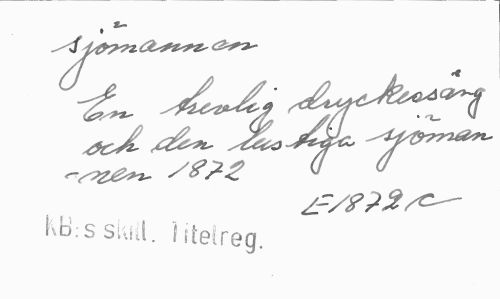 sjömannen
En trevlig dryckessång
och den lustiga sjöman
-nen 1872
E1872c
KB:s skill. Titelreg.